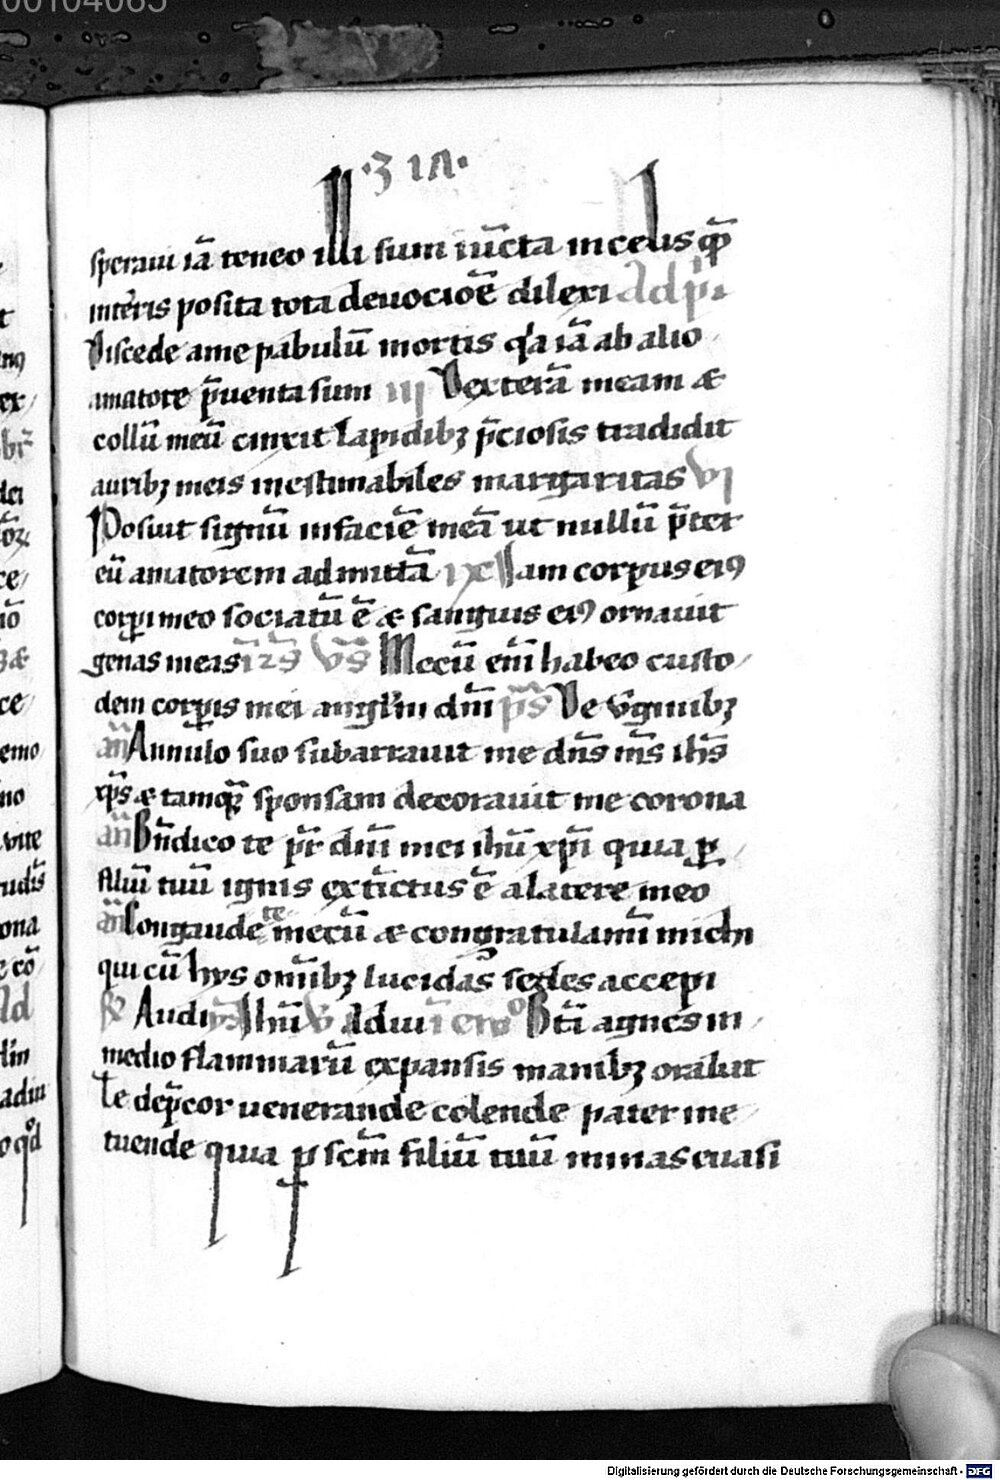 00104065
·314·
speraui iā teneo illi sum iūcta in celis quē
in tēris posita tota deuociōē dilexi Ad pͥ
Discede a me pabulū mortis qͣa iā ab alio
amatore p̄uenta sum iij Dexterā meam et
collū meū cinxit lapidibꝫ p̄ciosis tradidit
auribꝫ meis inestimabiles margaritas vi
Posuit signū in faciē meā ut nullū p̄ter
eū amatorem admittā ix Iam corpus eiꝰ
corpi meo sociatū ē et sanguis eiꝰ ornauit
genas meas Mecū em̄ habeo custo
dem corpis mei anglm̄ dn̄i ps̄ De v̄ginibꝫ
an̄ Annulo suo subarrauit me dn̄s m̄s ihs̄
xp̄s et tamqꝫ sponsam decorauit me corona
an̄ Bn̄dico te pr̄ dn̄i mei ihū xp̄i quia ꝑ
filiū tuū ignis extīctus ē a latere meo
an̄ Congaudete mecū et congratulamī michi
qui cū hys om̄ibꝫ lucidas sedes accepi
Audi Ihū Adiui Btī agnes in
medio flammarū expansis manibꝫ orabat
te dep̄cor uenerande colende pater me
tuende quia ꝑ scm̄ filiū tuū minas euasi
Digitalisierung gefördert durch die Deutsche Forschungsgemeinschaft - DFG